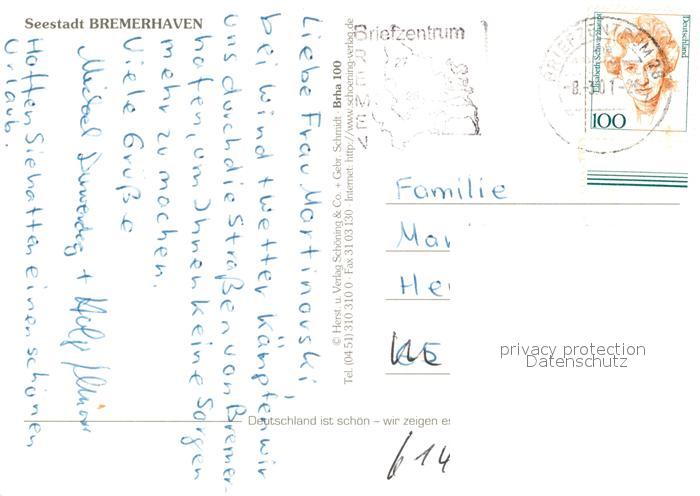 Seestadt BREMERHAVEN
Liebe Frau Martinovski!
bei Wind + Wetter kämpfen wir
uns durch die Straßen von Bremer-
hafen, um Ihnen keine Sorgen
mehr zu machen.
Viele Grüße
Michael +
Hoffen Sie hatten einen schönen
Urlaub.
© Herst. u. Verlag Schöning & Co. + Gebr. Schmidt · Brha 100
Tel. (04 51) 310 310 0 · Fax 31 03 130 · Internet: http://www.schoening-verlag.de
Deutschland ist schön – wir zeigen es
Briefzentrum
BRIEFZENTRUM 28
-8.-3.01-2
Elisabeth Schwarzhaupt
Deutschland
100
Familie
Mar
He
614
privacy protection
Datenschutz